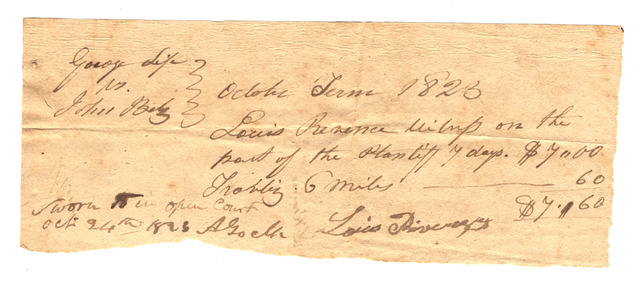 George
vs.
John
October Term 1823
Louis witness on the
part of the Plantiff 7 days. $7.00
6 miles 60
$7.60
Sworn to in open Court
oct 24th 1823
Louis